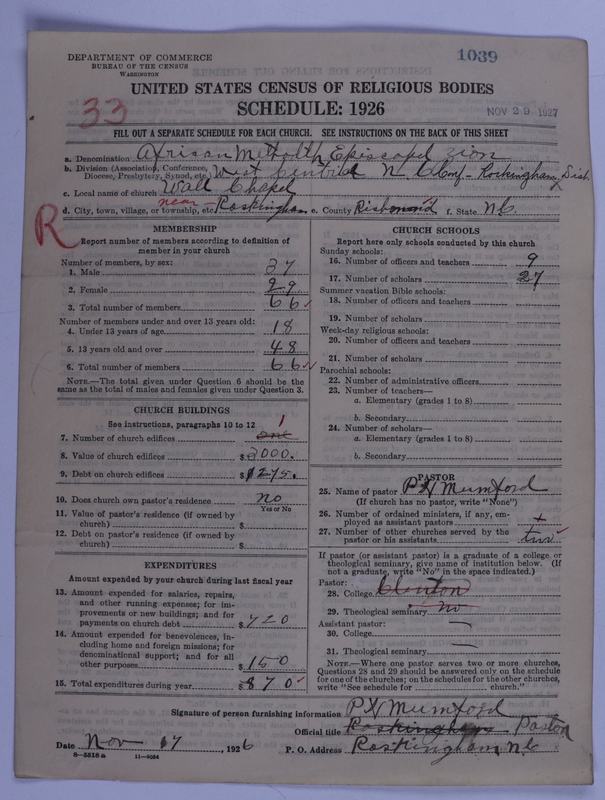 DEPARTMENT OF COMMERCE
BUREAU OF THE CENSUS
WASHINGTON
1039
UNITED STATES CENSUS OF RELIGIOUS BODIES
SCHEDULE: 1926
NOV 29 1927
33
FILL OUT A SEPARATE SCHEDULE FOR EACH CHURCH. SEE INSTRUCTIONS ON THE BACK OF THIS SHEET
a. Denomination African Episcopal Zion
b. Division (Association, Conference, Diocese, Presbytery, Synod, etc. West N C Conf - Rockingham Dist
c. Local name of church Wall Chapel
d. City, town, village, or township, etc. near Rockingham e. County Richmond f. State N.C.
R
MEMBERSHIP
Report number of members according to definition of
member in your church
Number of members, by sex:
1. Male 37
2. Female 29
3. Total number of members 66
Number of members under and over 13 years old:
4. Under 13 years of age 18
5. 13 years old and over 48
6. Total number of members 66
NOTE.—The total given under Question 6 should be the
same as the total of males and females given under Question 3.
CHURCH BUILDINGS
See instructions, paragraphs 10 to 12
7. Number of church edifices one 1
8. Value of church edifices $ 2000.
9. Debt on church edifices $ 1275.
10. Does church own pastor's residence No
Yes or No
11. Value of pastor's residence (if owned by
church) $
12. Debt on pastor's residence (if owned by
church) $
EXPENDITURES
Amount expended by your church during last fiscal year
13. Amount expended for salaries, repairs,
and other running expenses; for im-
provements or new buildings; and for
payments on church debt $ 720
14. Amount expended for benevolences, in-
cluding home and foreign missions; for
denominational support; and for all
other purposes $ 150
15. Total expenditures during year $ 870
CHURCH SCHOOLS
Report here only schools conducted by this church
Sunday schools:
16. Number of officers and teachers 9
17. Number of scholars 27
Summer vacation Bible schools:
18. Number of officers and teachers
19. Number of scholars
Week-day religious schools:
20. Number of officers and teachers
21. Number of scholars
Parochial schools:
22. Number of administrative officers
23. Number of teachers—
a. Elementary (grades 1 to 8)
b. Secondary
24. Number of scholars—
a. Elementary (grades 1 to 8)
b. Secondary
PASTOR
25. Name of pastor P W Mumford
(If church has no pastor, write "None")
26. Number of ordained ministers, if any, em-
ployed as assistant pastors
27. Number of other churches served by the
pastor or his assistants two
If pastor (or assistant pastor) is a graduate of a college or
theological seminary, give name of institution below. (If
not a graduate, write "No" in the space indicated.)
Pastor:
28. College Clinton
29. Theological seminary No
Assistant pastor:
30. College
31. Theological seminary
NOTE.—Where one pastor serves two or more churches,
Questions 28 and 29 should be answered only on the schedule
for one of the churches; on the schedules for the other churches,
write "See schedule for church."
Signature of person furnishing information P W Mumford
Official title Rockingham Pastor
Date Nov 17, 1926 P. O. Address Rockingham, N C
8—5518a 11—9084